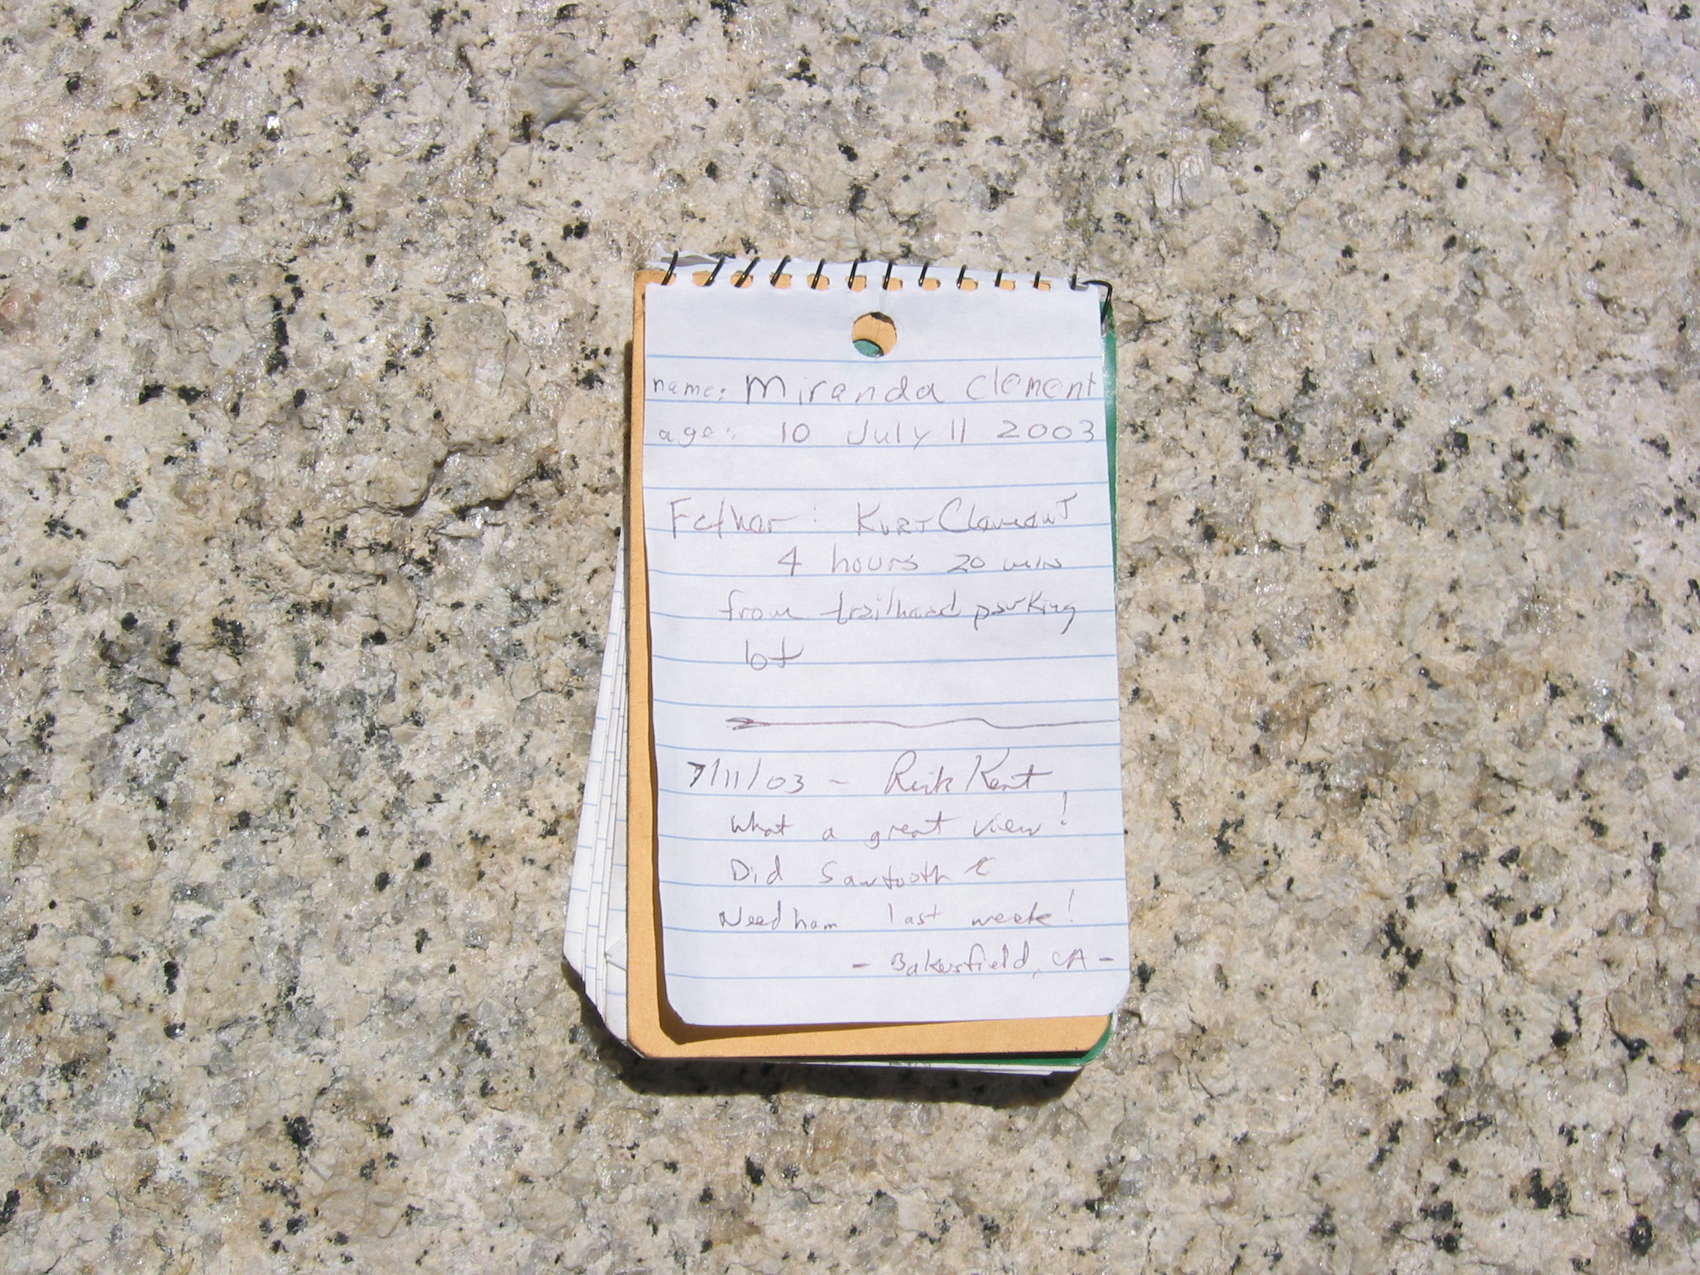 name: Miranda Clement
age: 10 July 11 2003
Father: Kurt Clement
4 hours 20 min
from trailhead parking
lot
7/11/03 - Rick Kent
What a great view!
Did Sawtooth &
Needham last week!
- Bakersfield, CA -